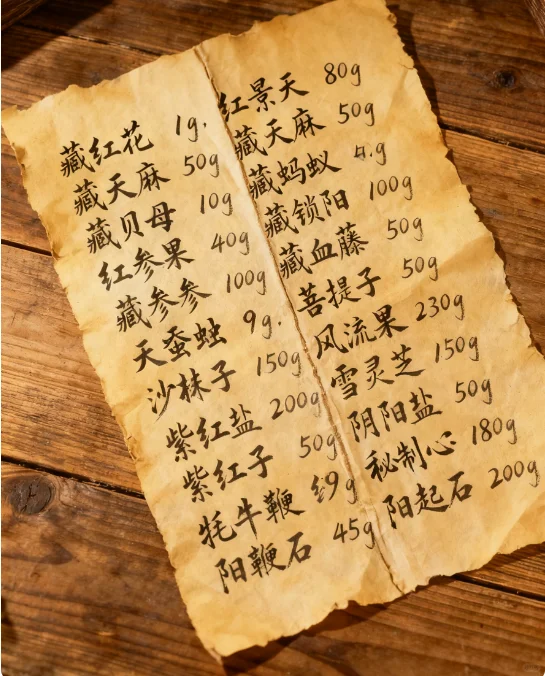 藏红花 1g.
藏天麻 50g
藏贝母 10g
红参果 40g
藏参参 100g
天蚕虫 9g.
沙林子 150g
紫红盐 200g
紫红子 50g
牦牛鞭 9g
阳鞭石 45g
红景天 80g
藏天麻 50g
藏蚂蚁 g
藏锁阳 100g
藏血藤 50g
菩提子 50g
风流果 230g
雪灵芝 150g
阴阳盐 50g
秘制心 180g
阳起石 200g